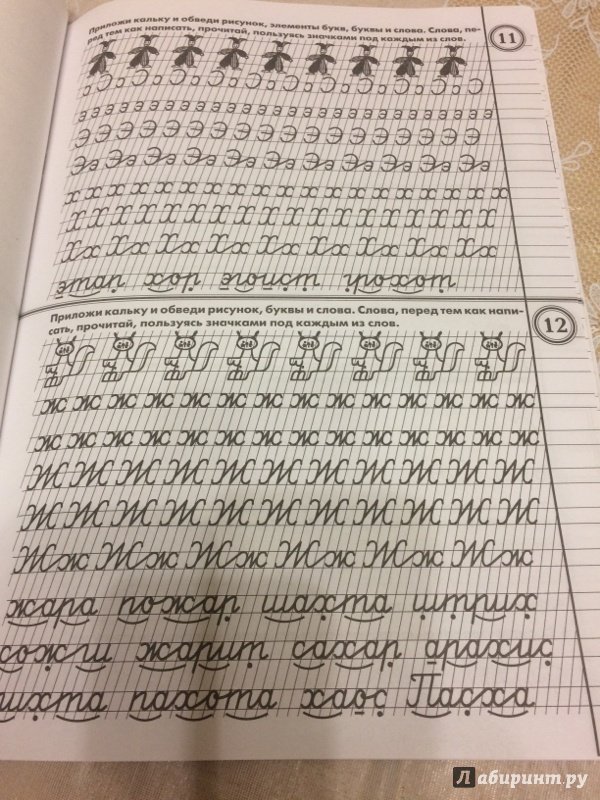 Приложи кальку и обведи рисунок, элементы букв, буквы и слова. Слова, пе-
ред тем как написать, прочитай, пользуясь значками под каждым из слов.
11
э э э э э э э э э э э э э э э э э э э э э э
Э Э Э Э Э Э Э Э Э Э Э Э Э Э Э
Ээ Ээ Ээ Ээ Ээ Ээ Ээ Ээ Ээ Ээ Ээ
х х х х х х х х х х х х х х х х х х х
Х Х Х Х Х Х Х Х Х Х Х Х Х Х Х Х Х
Хх Хх Хх Хх Хх Хх Хх Хх Хх
этап хор эгоист грохот
Приложи кальку и обведи рисунок, буквы и слова. Слова, перед тем как напи-
сать, прочитай, пользуясь значками под каждым из слов.
12
ж ж ж ж ж ж ж ж ж ж ж ж ж ж ж
ж ж ж ж ж ж ж ж ж ж ж ж ж ж ж
Ж Ж Ж Ж Ж Ж Ж Ж Ж Ж Ж Ж Ж
Ж Ж Ж Ж Ж Ж Ж Ж Ж Ж Ж Ж Ж
Жж Жж Жж Жж Жж Жж
жара пожар шахта штрих
сожги жарит сахар арахис
пахота хаос Пасха
Лабиринт.ру